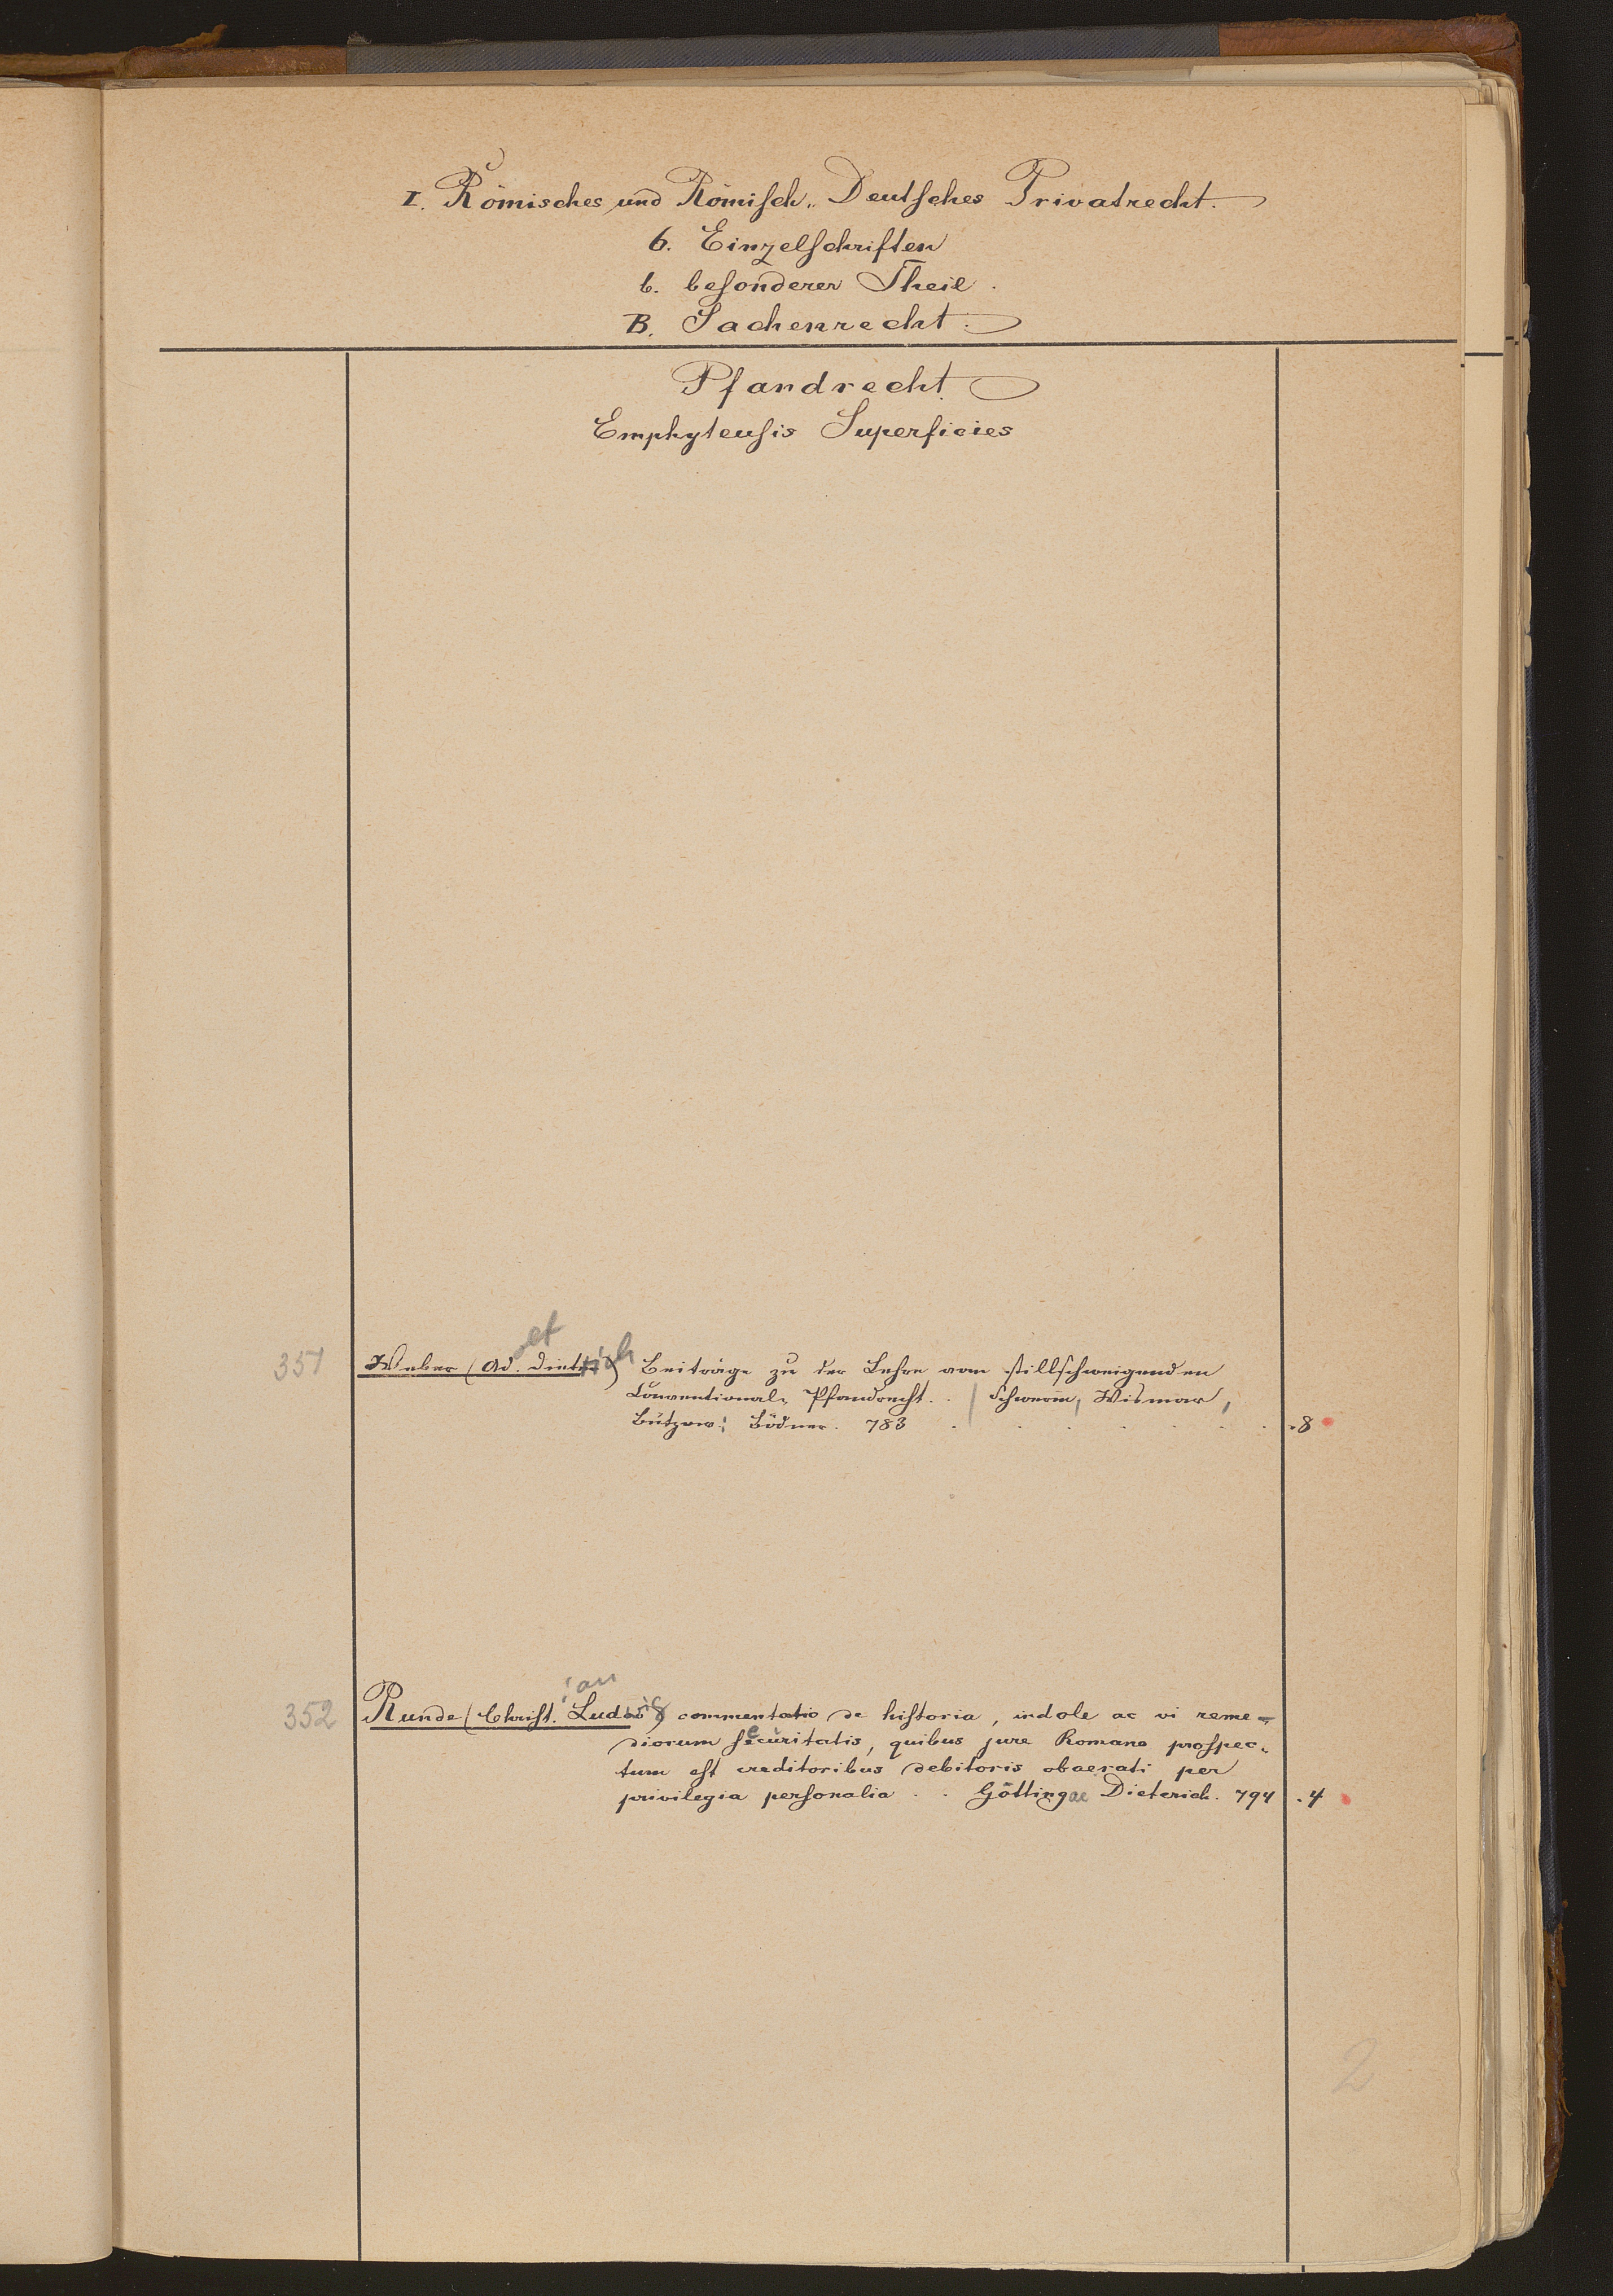 I. Römisches und Römisch-Deutsches Privatrecht.
6. Einzelschriften
b. besonderer Theil.
B. Sachenrecht.
Pfandrecht.
Emphyteusis Superficies
351 Weber (Ad. Dietrich) Beiträge zu der Lehre vom stillschweigenden
Conventional-Pfandrecht. . / Schwerin, Wismar,
Bützow: Bödner. 783 . 8
352 Runde (Christian Ludwig) commentatio de historia, indole ac vi reme-
diorum securitatis, quibus jure Romano prospec-
tum est creditoribus debitoris obaerati per
privilegia personalia . . Göttingae Dieterich. 794 . 4
2